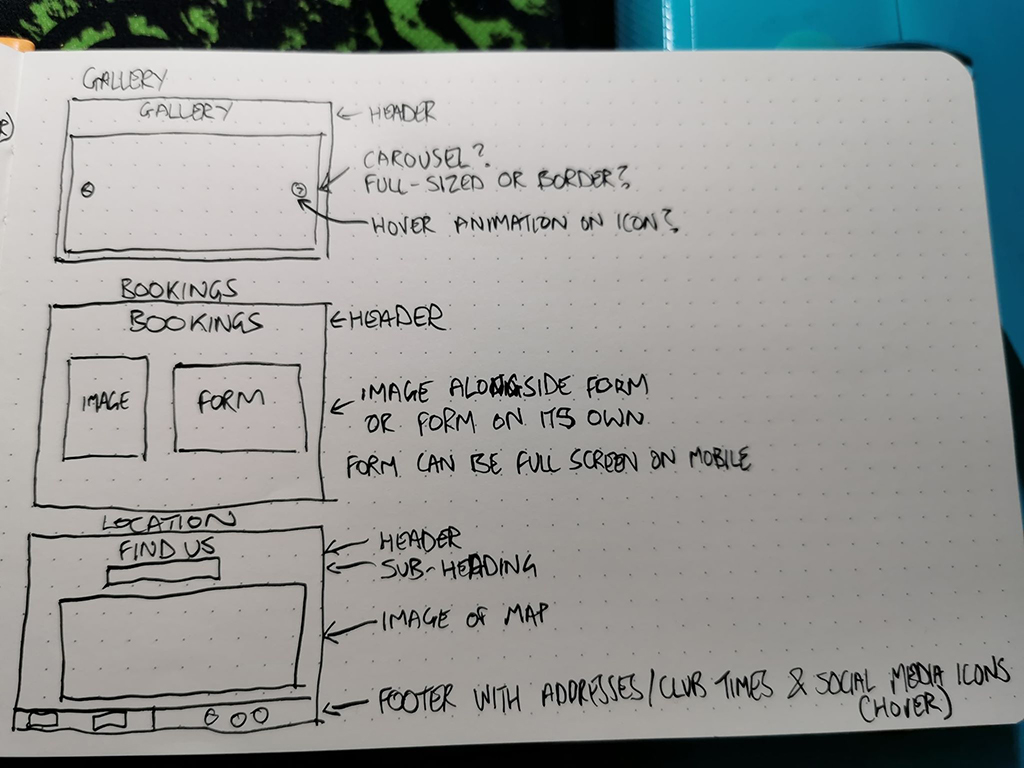 GALLERY
GALLERY
HEADER
CAROUSEL?
FULL-SIZED OR BORDER?
HOVER ANIMATION ON ICON?
BOOKINGS
BOOKINGS
HEADER
IMAGE
FORM
IMAGE ALONGSIDE FORM
OR FORM ON ITS OWN
FORM CAN BE FULL SCREEN ON MOBILE
LOCATION
FIND US
HEADER
SUB-HEADING
IMAGE OF MAP
FOOTER WITH ADDRESSES/CLUB TIMES & SOCIAL MEDIA ICONS
(HOVER)